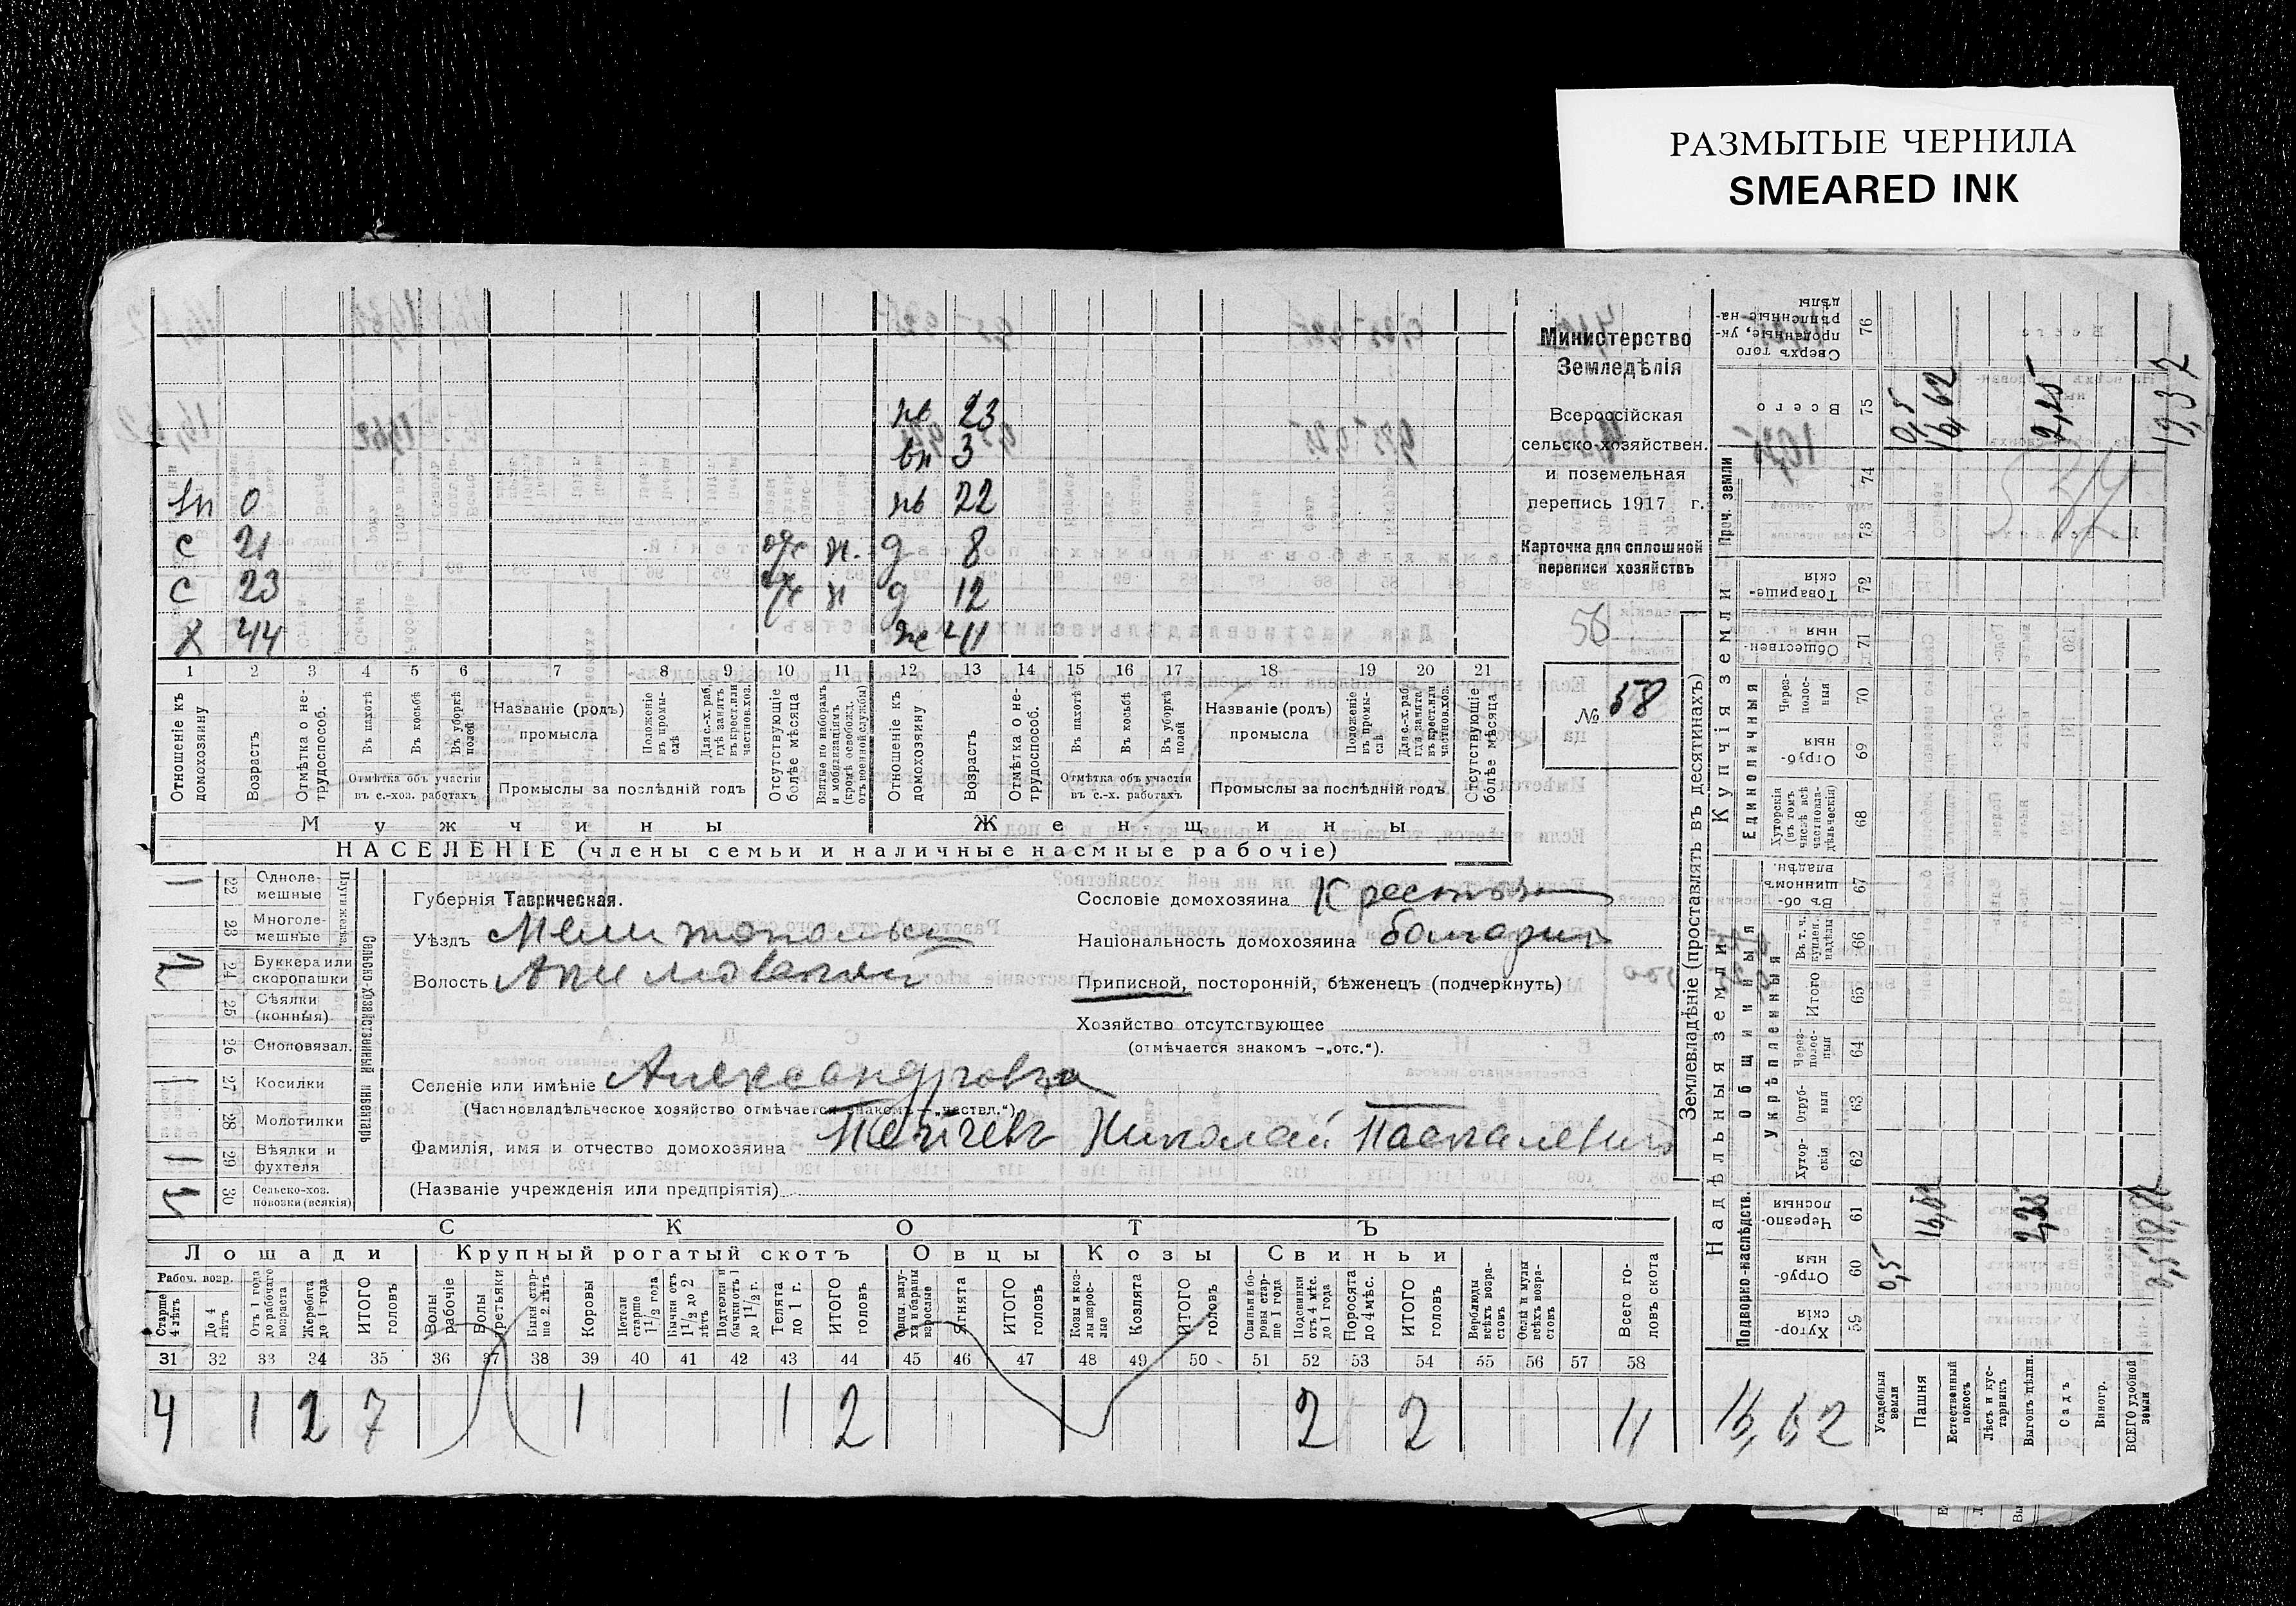 РАЗМЫТЫЕ ЧЕРНИЛА
SMEARED INK
Министерство
Земледѣлія
Всероссійская
сельско-хозяйствен.
и поземельная
перепись 1917 г.
Карточка для сплошной
переписи хозяйствъ
56
№ 58
23
3
0 22
с 21 отс н. д 8
с 23 отс н д 12
х 44 ж 41
1 2 3 4 5 6 7 8 9 10 11 12 13 14 15 16 17 18 19 20 21
Отношеніе къ домохозяину
Возрастъ
Отмѣтка о нетрудоспособ.
Въ пахотѣ
Въ косьбѣ
Въ уборкѣ полей
Отмѣтка объ участіи въ с.-хоз. работахъ
Названіе (родъ) промысла
Положеніе въ промыслѣ
Для с.-х. раб. гдѣ занятъ въ крест. или частнов. хоз.
Промыслы за послѣдній годъ
Отсутствующіе болѣе мѣсяца
Взятые по наборамъ и мобилизаціямъ (кромѣ освобожд. отъ военной службы)
Отношеніе къ домохозяину
Возрастъ
Отмѣтка о нетрудоспособ.
Въ пахотѣ
Въ косьбѣ
Въ уборкѣ полей
Отмѣтка объ участіи въ с.-х. работахъ
Названіе (родъ) промысла
Положеніе въ промыслѣ
Для с.-х. раб. гдѣ занята въ крест. или частнов. хоз.
Промыслы за послѣдній годъ
Отсутствующіе болѣе мѣсяца
Мужчины Женщины
НАСЕЛЕНІЕ (члены семьи и наличные наемные рабочіе)
Сельско-хозяйственный инвентарь
Плуги желѣз.
22 Однолемешные
23 Многолемешные
24 Буккера или скоропашки
25 Сѣялки (конныя)
26 Сноповязал.
27 Косилки
28 Молотилки
29 Вѣялки и фухтеля
30 Сельско-хоз. повозки (всякія)
Губернія Таврическая.
Уѣздъ Мелитопольск
Волость
Сословіе домохозяина Крестьян
Національность домохозяина болгарин
Приписной, посторонній, бѣженецъ (подчеркнуть)
Хозяйство отсутствующее
(отмѣчается знакомъ -„отс.“).
Селеніе или имѣніе Александровка
(Частновладѣльческое хозяйство отмѣчается знакомъ -„частвл.“)
Фамилія, имя и отчество домохозяина Пейчевъ Николай Паскалевичъ
(Названіе учрежденія или предпріятія)
СКОТЪ
Лошади Крупный рогатый скотъ Овцы Козы Свиньи
Рабоч. возр.
Старше 4 лѣтъ
До 4 лѣтъ
Отъ 1 года до рабочаго возраста
Жеребята до 1 года
ИТОГО головъ
Волы рабочіе
Волы третьяки
Быки старше 2 лѣтъ
Коровы
Нетели старше 1½ года
Бычки отъ 1½ до 2 лѣтъ
Подтелки и бычки отъ 1 до 1½ г.
Телята до 1 г.
ИТОГО головъ
Овцы, валуха и бараны взрослые
Ягнята
ИТОГО головъ
Козы и козлы взрослые
Козлята
ИТОГО головъ
Свиньи боровы старше 1 года
Подсвинки отъ 4 мѣс. до 1 года
Поросята до 4 мѣс.
ИТОГО головъ
Верблюды всѣхъ возрастовъ
Ослы и мулы всѣхъ возрастовъ
Всего головъ скота
31 32 33 34 35 36 37 38 39 40 41 42 43 44 45 46 47 48 49 50 51 52 53 54 55 56 57 58
4 1 2 7 1 1 2 2 2 11
Землевладѣніе (проставлять въ десятинахъ)
Надѣльныя земли
Купчія земли
Подворно-наслѣдств.
Общинныя
Укрѣпленныя
Единоличныя
Проч. земли
59 Хуторскія
60 Отрубныя
61 Черезполосныя
62 Хуторскія
63 Отрубныя
64 Черезполосныя
65 Итого
66 Въ т. ч. куплен. надѣлы
67 Въ общинномъ владѣн.
68 Хуторскія (въ томъ числѣ всѣ частновладѣльческія)
69 Отрубныя
70 Черезполосныя
71 Общественныя
72 Товарищескія
73
74
75 Всего
76 Сверхъ того проданные, укрѣпленные надѣлы
Усадебныя земли 0,5 0,5
Пашня 16,62 16,62
Естественный покосъ
Лѣсъ и кустарникъ
Выгонъ дѣлин. 2,25 2,25
Садъ
Виногр.
ВСЕГО удобной земли
16,62